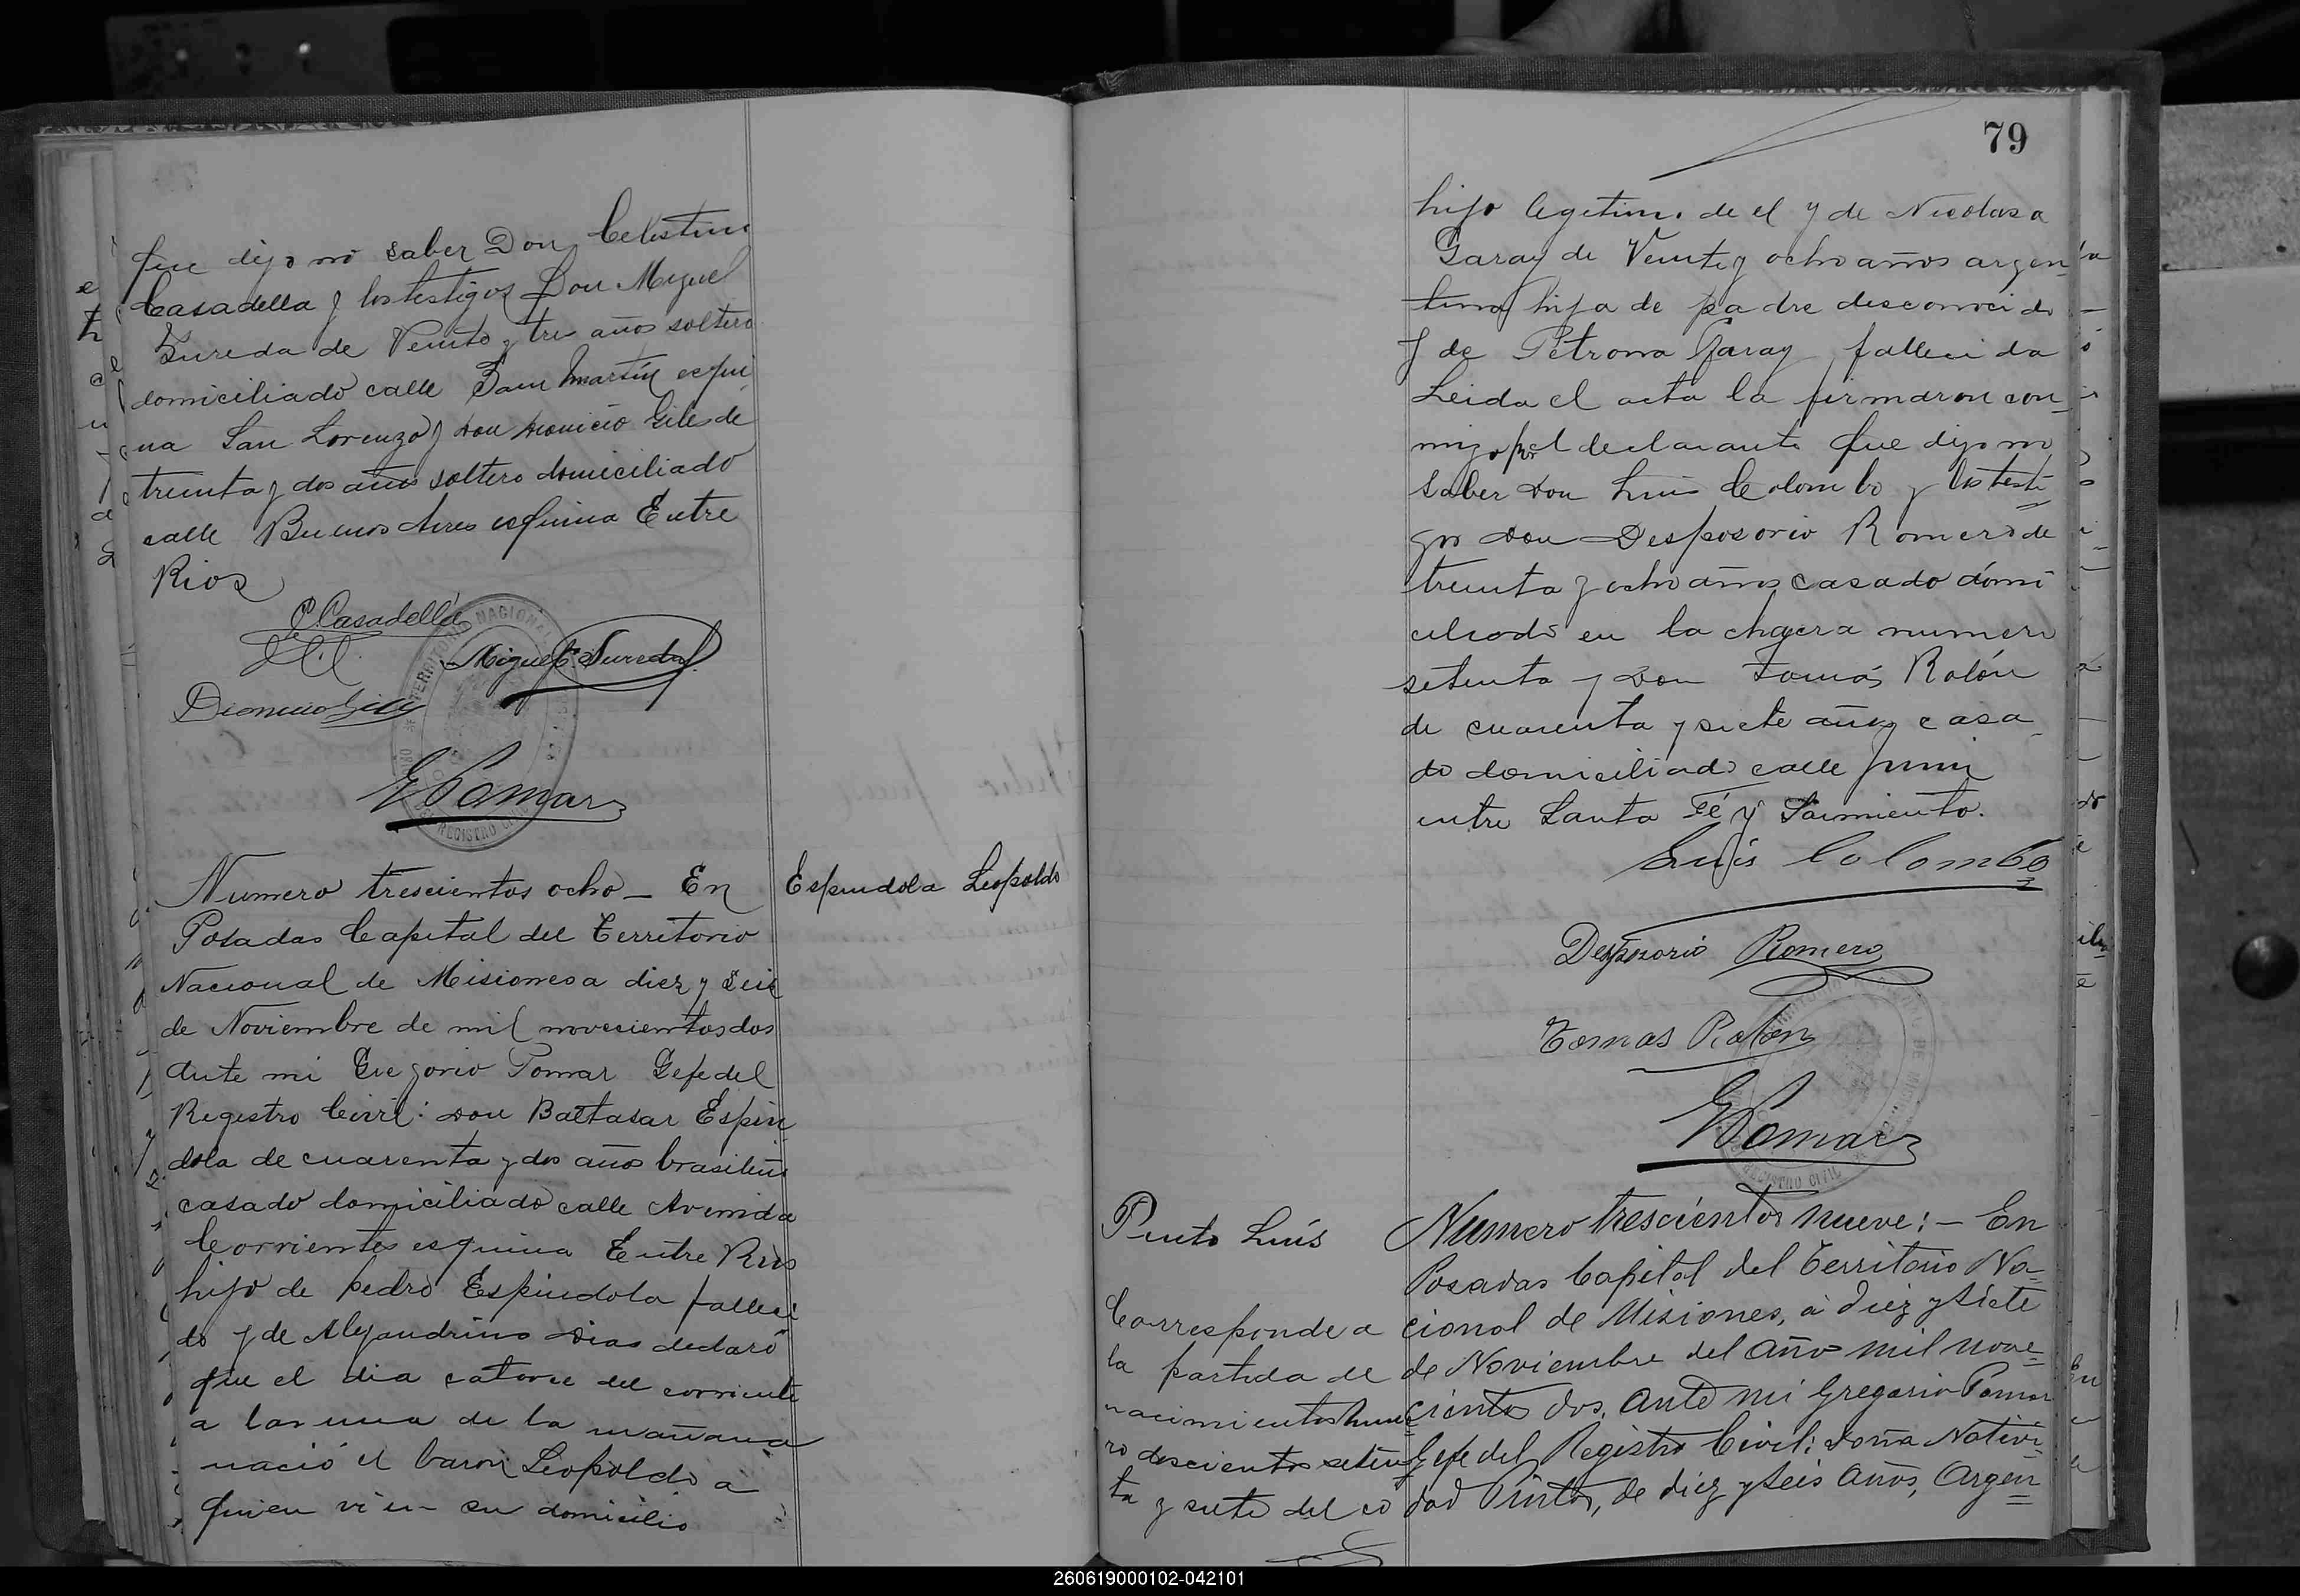 que dijo no saber Don Celestino
Casadella y los testigos Don Miguel
Sureda de Veinte y tres años soltero
domiciliado calle San Martín esqui
na San Lorenzo y Don Dionicio Giles de
treinta y dos años soltero domiciliado
calle Buenos Aires esquina Entre
Rios
C. Casadella
Miguel Sureda
E Pomar
Numero trescientos ocho — En
Posadas Capital del Territorio
Nacional de Misiones a diez y seis
de Noviembre de mil novecientos dos
Ante mi Gregorio Pomar Gefe del
Registro Civil: Don Baltasar Espin
dola de cuarenta y dos años brasileño
casado domiciliado calle Avenida
Corrientes esquina Entre Rios
hijo de pedro Espindola falleci
do y de Alejandrina Dias declaró
que el dia catorce del corriente
a la una de la mañana
nació el baron Leopoldo a
quien vi en su domicilio
Espindola Leopoldo
79
hijo legitimo de el y de Nicolasa
Garay de Veinte y ocho años argen
tina hija de padre desconocido
y de Petrona Garay fallecida
Leida el acta la firmaron con
migo por el declarante que dijo no
saber Don Luis Colombo y los testi
gos Don Desposorio Romero de
treinta y ocho años casado domi
ciliado en la chacra numero
setenta y Don Tomás Rolón
de cuarenta y siete años casa
do domiciliado calle Junin
entre Santa Fé y Sarmiento.
Luis Colombo
Desposorio Romero
Tomas Rolon
E Pomar
Pinto Luís
Corresponde a
la partida de
nacimientos nume
ro doscientos seten
ta y siete del co
Numero trescientos nueve: — En
Posadas Capital del Territorio Na-
cional de Misiones, á diez y siete
de Noviembre del Año mil nove-
cientos dos. Ante mi Gregorio Pomar
Gefe del Registro Civil: Doña Nativi-
dad Pinto, de diez y seis Años, Argen
260619000102-042101